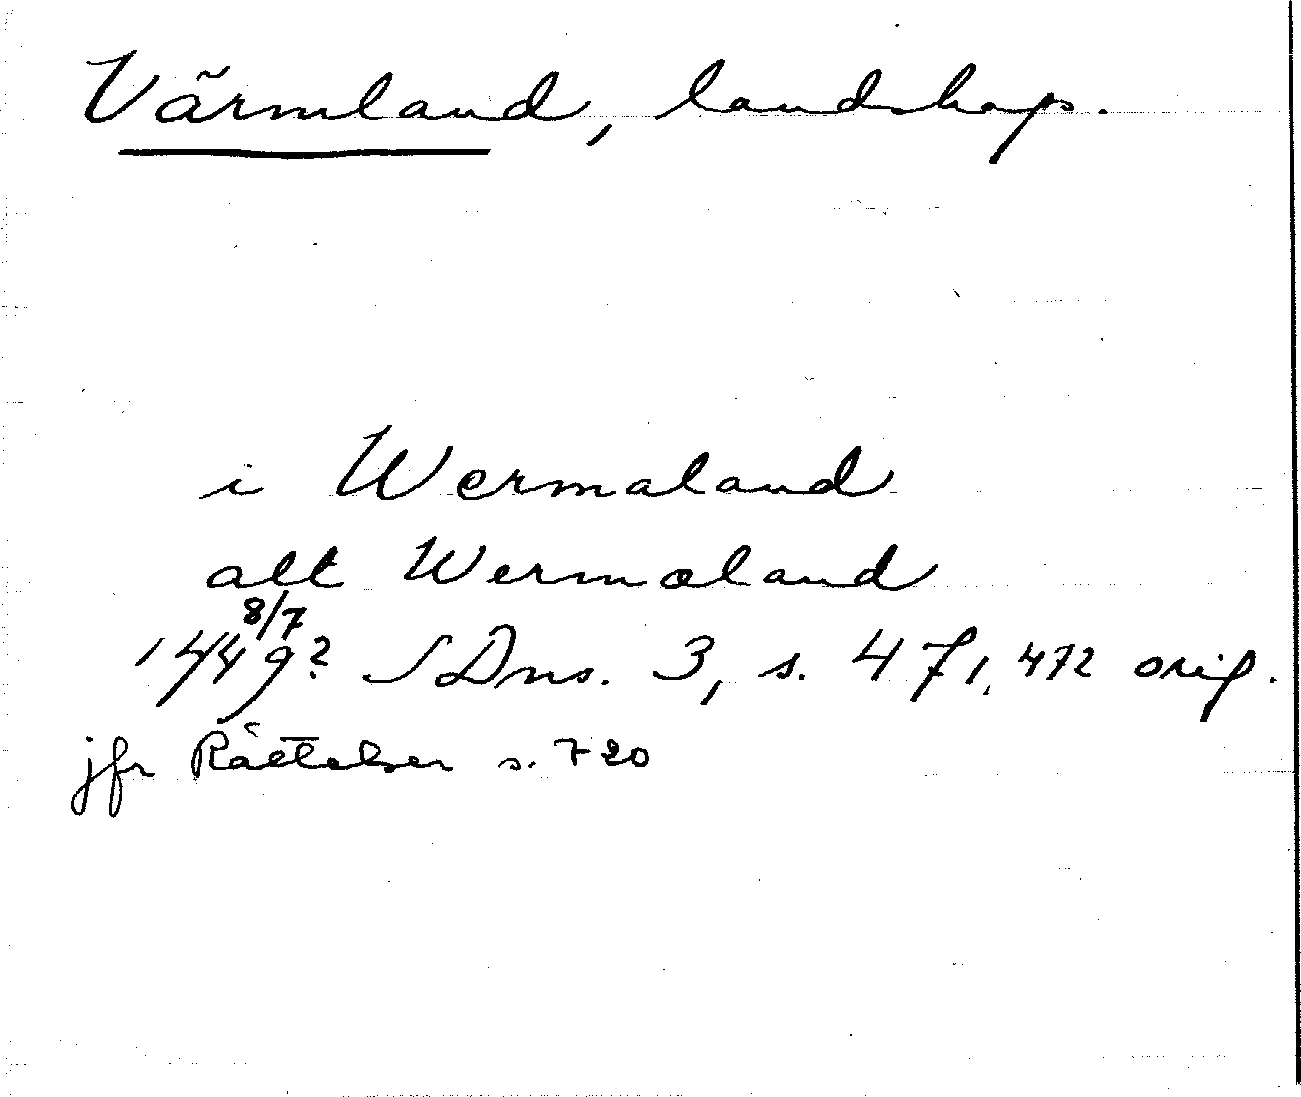 Värmland, landskap.
i Wermaland
alt Wermæland
8/7
1449? SDns. 3, s. 471, 472 orig.
jfr Rättelser s. 720